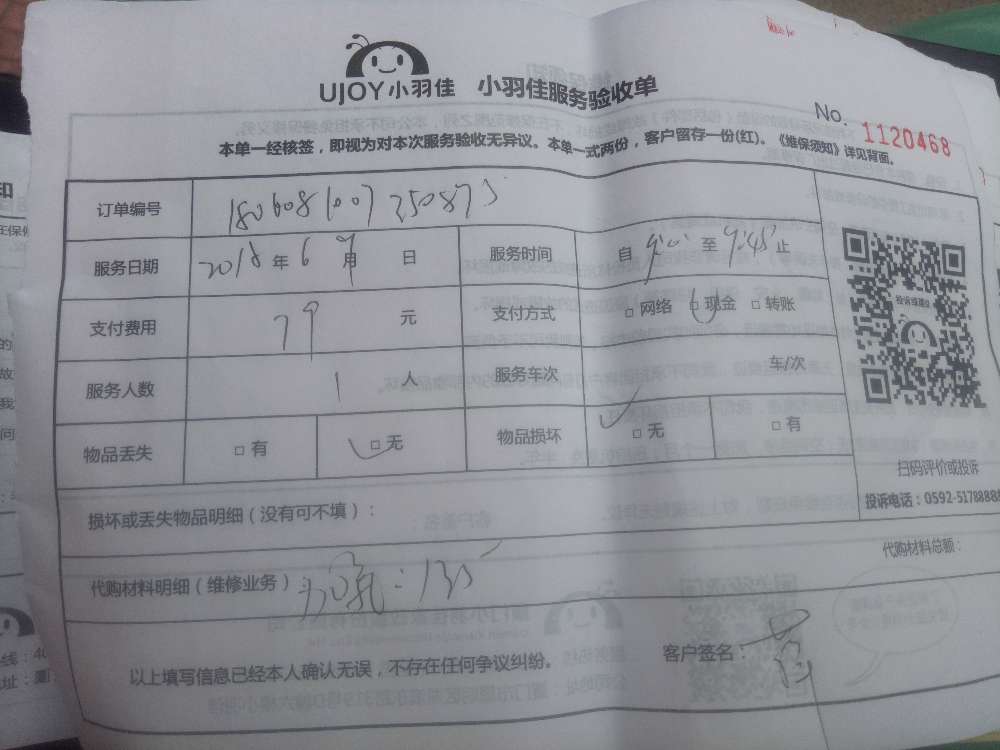 UJOY小羽佳 小羽佳服务验收单
No. 1120468
本单一经核签，即视为对本次服务验收无异议。本单一式两份，客户留存一份(红)。《维保须知》详见背面。
订单编号 1806081007250873
服务日期 2018年6月 日 服务时间 自9:00至9:45止
支付费用 79元 支付方式 □网络 □现金 □转账
服务人数 1人 服务车次 车/次
物品丢失 □有 □无 物品损坏 □无 □有
扫码评价或投诉
投诉电话：0592-5178888
损坏或丢失物品明细（没有可不填）：
代购材料总额：
代购材料明细（维修业务）
以上填写信息已经本人确认无误，不存在任何争议纠纷。 客户签名：